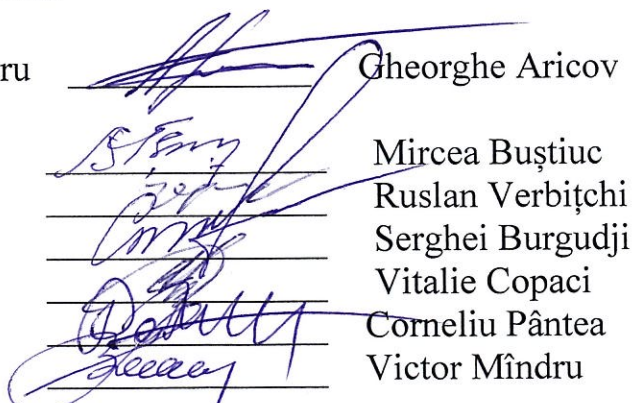 ru Gheorghe Aricov
Mircea Buștiuc
Ruslan Verbițchi
Serghei Burgudji
Vitalie Copaci
Corneliu Pântea
Victor Mîndru